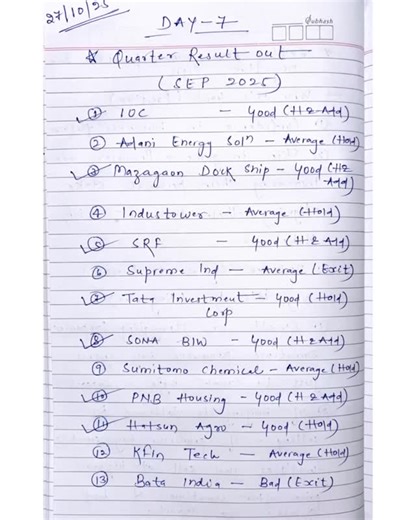 27/10/25
DAY-7
Subhash
☆ Quarter Result out
(SEP 2025)
① IOC - Good (H & Add)
② Adani Energy Solⁿ - Average (Hold)
③ Mazagaon Dock Ship - Good (H &
Add)
④ Industower - Average (Hold)
⑤ SRF - Good (H & Add)
⑥ Supreme Ind - Average (Exit)
⑦ Tata Investment - Good (Hold)
Corp
⑧ SONA BLW - Good (H & Add)
⑨ Sumitomo Chemical - Average (Hold)
⑩ PNB Housing - Good (H & Add)
⑪ Hatsun Agro - Good (Hold)
⑫ Kfin Tech - Average (Hold)
⑬ Bata India - Bad (Exit)